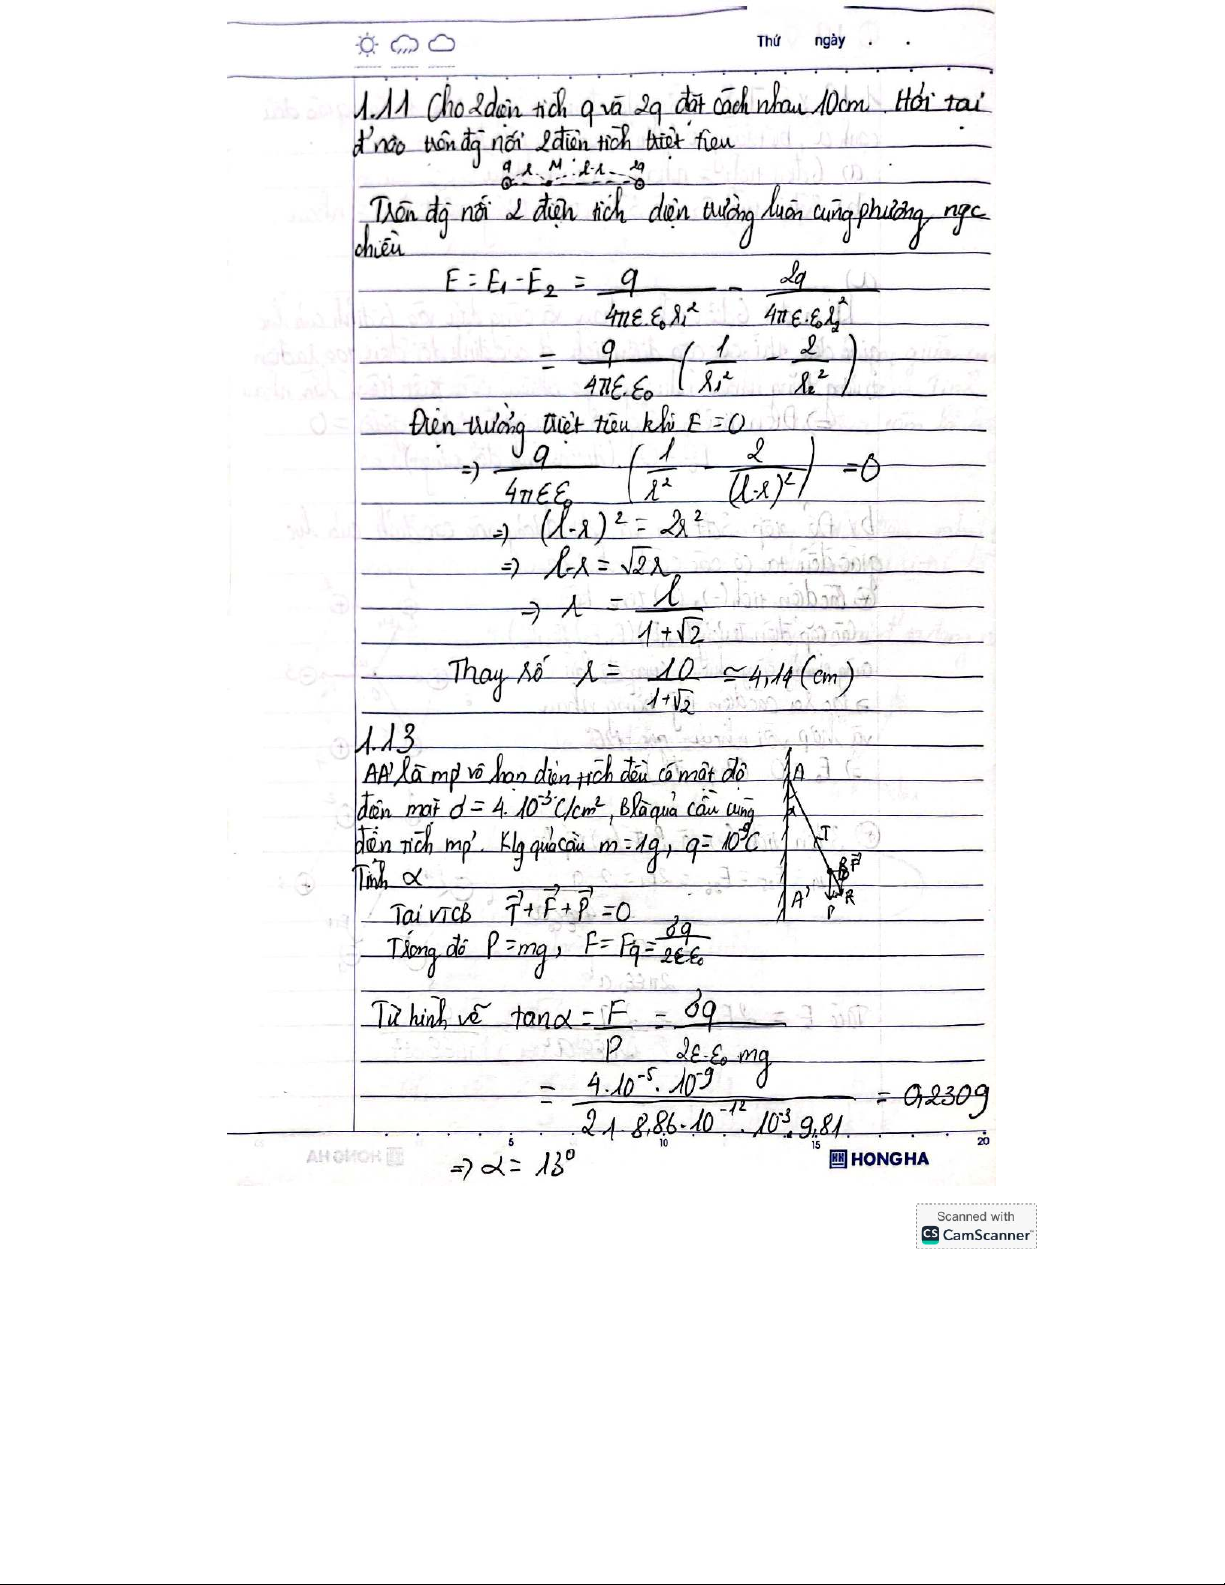 Thứ ngày . .
1.11 Cho 2 điện tích q và 2q đặt cách nhau 10cm. Hỏi tại
đ' nào trên đg nối 2 điện tích triệt tiêu
q r M l-r 2q
Trên đg nối 2 điện tích điện trường luôn cùng phương, ngc
chiều
E = E₁ - E₂ = q/(4πε.ε₀r₁²) - 2q/(4πε.ε₀r₂²)
= q/(4πε.ε₀) (1/r₁² - 2/r₂²)
Điện trường triệt tiêu khi E = 0
=> q/(4πεε₀) . (1/r² - 2/(l-r)²) = 0
=> (l-r)² = 2r²
=> l-r = √2r
=> r = l/(1+√2)
Thay số r = 10/(1+√2) ≃ 4,14 (cm)
1.13
AA' là mp' vô hạn điện tích đều có mật độ
điện mặt σ = 4.10⁻³C/cm², B là quả cầu cùng
điện tích mp'. Klg quả cầu m = 1g, q = 10⁻⁹C
Tính α
A
α
T
B F
A' P R
Tại VTCB T⃗ + F⃗ + P⃗ = 0
Trong đó P = mg, F = Fq = σq/(2εε₀)
Từ hình vẽ tanα = F/P = σq/(2ε.ε₀ mg)
= 4.10⁻⁵.10⁻⁹/(2.1.8,86.10⁻¹².10⁻³.9,81) = 0,2309
5 10 15 20
HONG HA
=> α = 13°
Scanned with
CS CamScanner